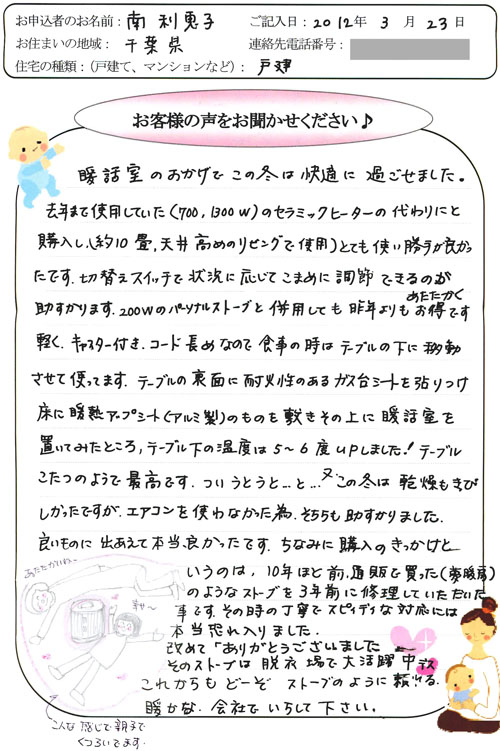 お申込者のお名前： 南 利恵子
ご記入日：2012年 3 月 23日
お住まいの地域： 千葉県
連絡先電話番号：
住宅の種類：(戸建て、マンションなど)： 戸建
お客様の声をお聞かせください♪
暖話室のおかげでこの冬は快適に過ごせました。
去年まで使用していた(700,1300W)のセラミックヒーターの代わりにと
購入し、(約10畳,天井高めのリビングで使用)とても使い勝手が良かっ
たです。切替えスイッチで状況に応じてこまめに調節できるのが
助すかります。200Wのパーソナルストーブと併用しても昨年よりもあたたかくお得です
軽く、キャスター付き、コード長めなので食事の時はテーブルの下に移動
させて使ってます。テーブルの裏面に耐火性のあるガス台シートを張りつけ
床に暖熱アップシート(アルミ製)のものを敷きその上に暖話室を
置いてみたところ,テーブル下の温度は5～6度UPしました!テーブル
こたつのようで最高です。ついうとうと…と…又この冬は乾燥もきび
しかったですが、エアコンを使わなかった為、そちらも助すかりました。
良いものに出あえて本当良かったです。ちなみに購入のきっかけと
いうのは、10年ほど前、通販で買った(夢暖房)
のようなストーブを3年前に修理していただいた
事です。その時の丁寧でスピィディな対応には
本当恐れ入りました。
改めて「ありがとうございました
そのストーブは脱衣場で大活躍中デス
これからもどーぞストーブのように頼れる、
暖かな、会社でいらして下さい。
あたたかいわ～
こんな感じで親子で
くつろいでます.